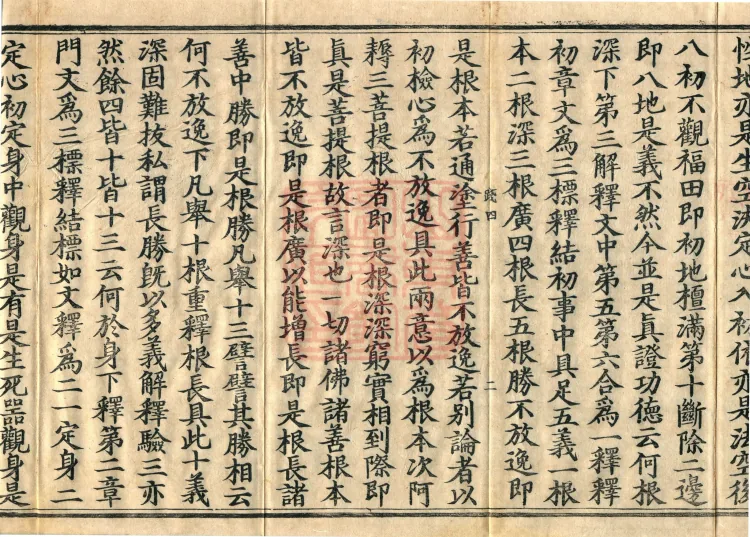 性地亦是生空法定心八初住亦是法空後
八初不觀福田即初地檀滿第十斷除二邊
即八地是義不然今並是眞證功德云何根
深下第三解釋文中第五第六合爲一釋釋
初章文爲三標釋結初事中具足五義一根
本二根深三根廣四根長五根勝不放逸即
疏四 二
是根本若通塗行善皆不放逸若別論者以
初檢心爲不放逸具此兩意以爲根本次阿
耨三菩提根者即是根深深窮實相到際即
眞是菩提根故言深也一切諸佛諸善根本
皆不放逸即是根廣以能增長即是根長諸
善中勝即是根勝凡舉十三譬譬其勝相云
何不放逸下凡舉十根重釋根長具此十義
深固難拔私謂長勝旣以多義解釋驗三亦
然餘四皆十皆十三云何於身下釋第二章
門文爲三標釋結標如文釋爲二一定身二
定心初定身中觀身是有是生死器觀身是